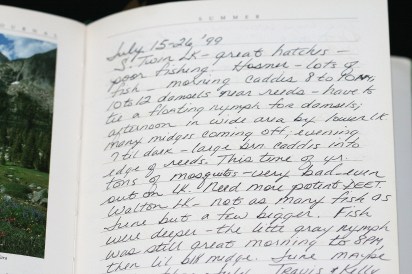 JOURNAL
SUMMER
July 15-26, '99
S. Twin LK - great hatches -
poor fishing. Hosmer - lots of
fish - morning caddis 8 to 10 AM,
10 to 12 damsels near reeds - have to
tie a floating nymph for damsels;
afternoon in wide area by lower LK
many midges coming off; evening
7 til dark - large brn caddis into
edge of reeds. This time of yr.
tons of mosquitos - very bad - even
out on LK. Need more potent DEET.
Walton LK - not as many fish as
June but a few bigger. Fish
were deeper - the little gray nymph
was still great morning to 8PM,
then lil blk midge. June maybe
July. Travis & Kelly